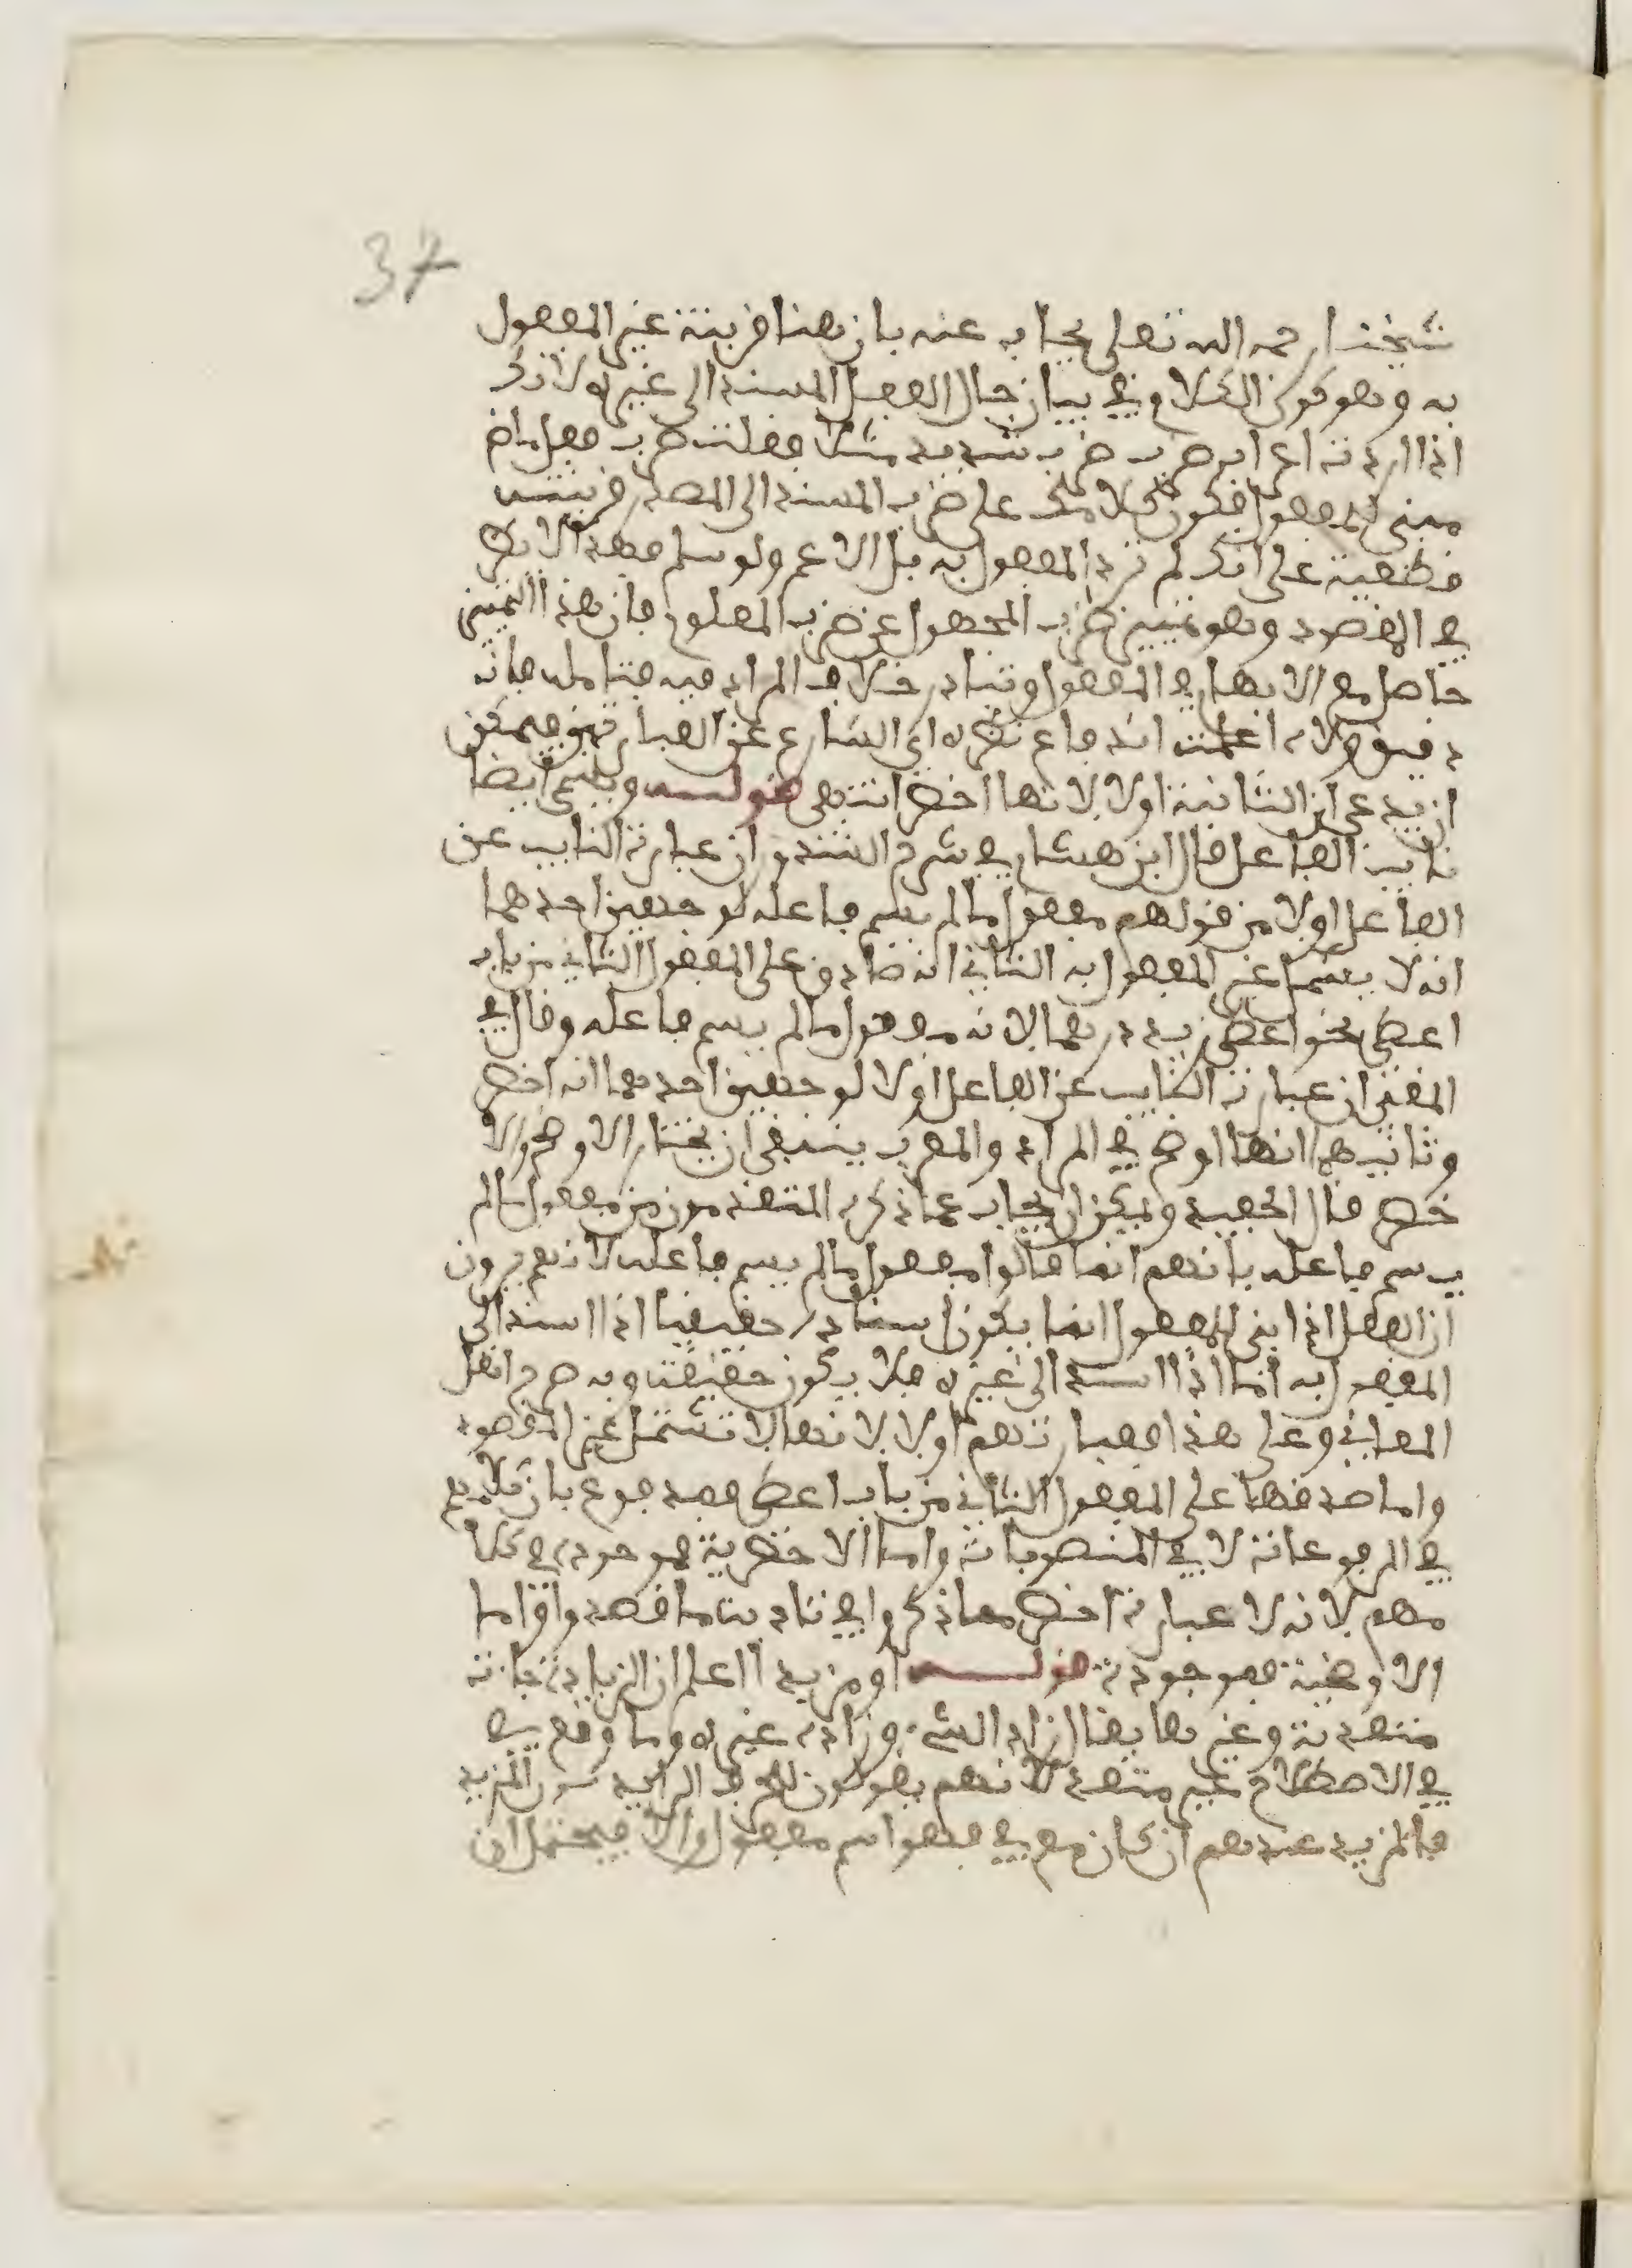 37
شيخنا رحمه الله تعلى يجاب عنه بان هنا قرينة غير المفعول
به وهو كون الكلام في بيان حال الفعل المسند الى غيره لانك
اذا اردت اعراب ضرب ضرب شديد مثلا فقلت ضرب فعل ماض
مبني للمفعول فكون كلامك على ضرب المسند الى المصدر قرينة
قطعية على انك لم ترد المفعول به بل الاعم ولو سلم فهذا لا يضر
في المقصود وهو تمييز ضرب المجهول عن ضرب المعلوم فان هذا التمييز
حاصل مع الابهام في المفعول وتبادر خلاف المراد فيه فتامله فانه
دقيق فلا اعلمت انه جاء نظره اي الشارع عن العبارتين فيمكن
ان يدعى ان الثانية اولا لانها اخصر انتهى قوله ويسمى ايضا
نايب الفاعل قال ابن هشام في شرح الشذور ان عبارة النايب عن
الفاعل اولا من قولهم مفعول ما لم يسم فاعله لوجهين احدهما
انه لا يشمل غير المفعول به الثاني انه صادق على المفعول الثاني من باب
اعطى نحو اعطي زيد درهما لانه مفعول ما لم يسم فاعله وقال في
المغني ان عبارة النايب عن الفاعل اولا لوجهين احدهما انه اخصر
وثانيهما انها اوضح في المراد والمعرب ينبغي ان يختار الاوضح والا
خصر قال الحفيد ويمكن ان يجاب عما ذكره المتقدمون من مفعول ما لم
يسم فاعله بانهم انما قالوا مفعول ما لم يسم فاعله لانهم يرون
ان الفعل اذا بني للمفعول انما يكون اسناده حقيقيا اذا اسند الى
المفعول به اما اذا اسند الى غيره فلا يكون حقيقة وبه صرح اهل
المعاني وعلى هذا فعبارتهم اولا لانها لا تشمل غير المقصود
واما صدقها على المفعول الثاني من باب اعطى فمدفوع بان كلامهم
في المرفوعات لا في المنصوبات واما الاخصرية فموجودة في كلا
مهم لانه لا عبارة اخصر مما ذكروا في تادية ما قصدوا واما
الاوضحية فموجودة قوله او مزيد اعلم ان الزيادة جاءت
متعدية وغيرها يقال زاد الشيء وزاده غيره وما وقع في
في الاصطلاح غير متعد لانهم يقولون للحرف الزايد دون المزيد
فالمزيد عندهم ان كان مع في فهو اسم مفعول والا فيحتمل ان